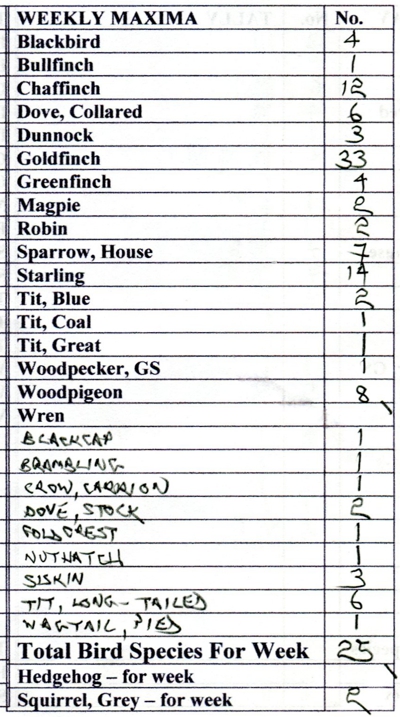 WEEKLY MAXIMA No.
Blackbird 4
Bullfinch 1
Chaffinch 12
Dove, Collared 6
Dunnock 3
Goldfinch 33
Greenfinch 4
Magpie 2
Robin 2
Sparrow, House 7
Starling 14
Tit, Blue 2
Tit, Coal 1
Tit, Great 1
Woodpecker, GS 1
Woodpigeon 8
Wren \
BLACKCAP 1
BRAMBLING 1
CROW, CARRION 1
DOVE, STOCK 2
GOLDCREST 1
NUTHATCH 1
SISKIN 3
TIT, LONG-TAILED 6
WAGTAIL, PIED 1
Total Bird Species For Week 25
Hedgehog – for week \
Squirrel, Grey – for week 2